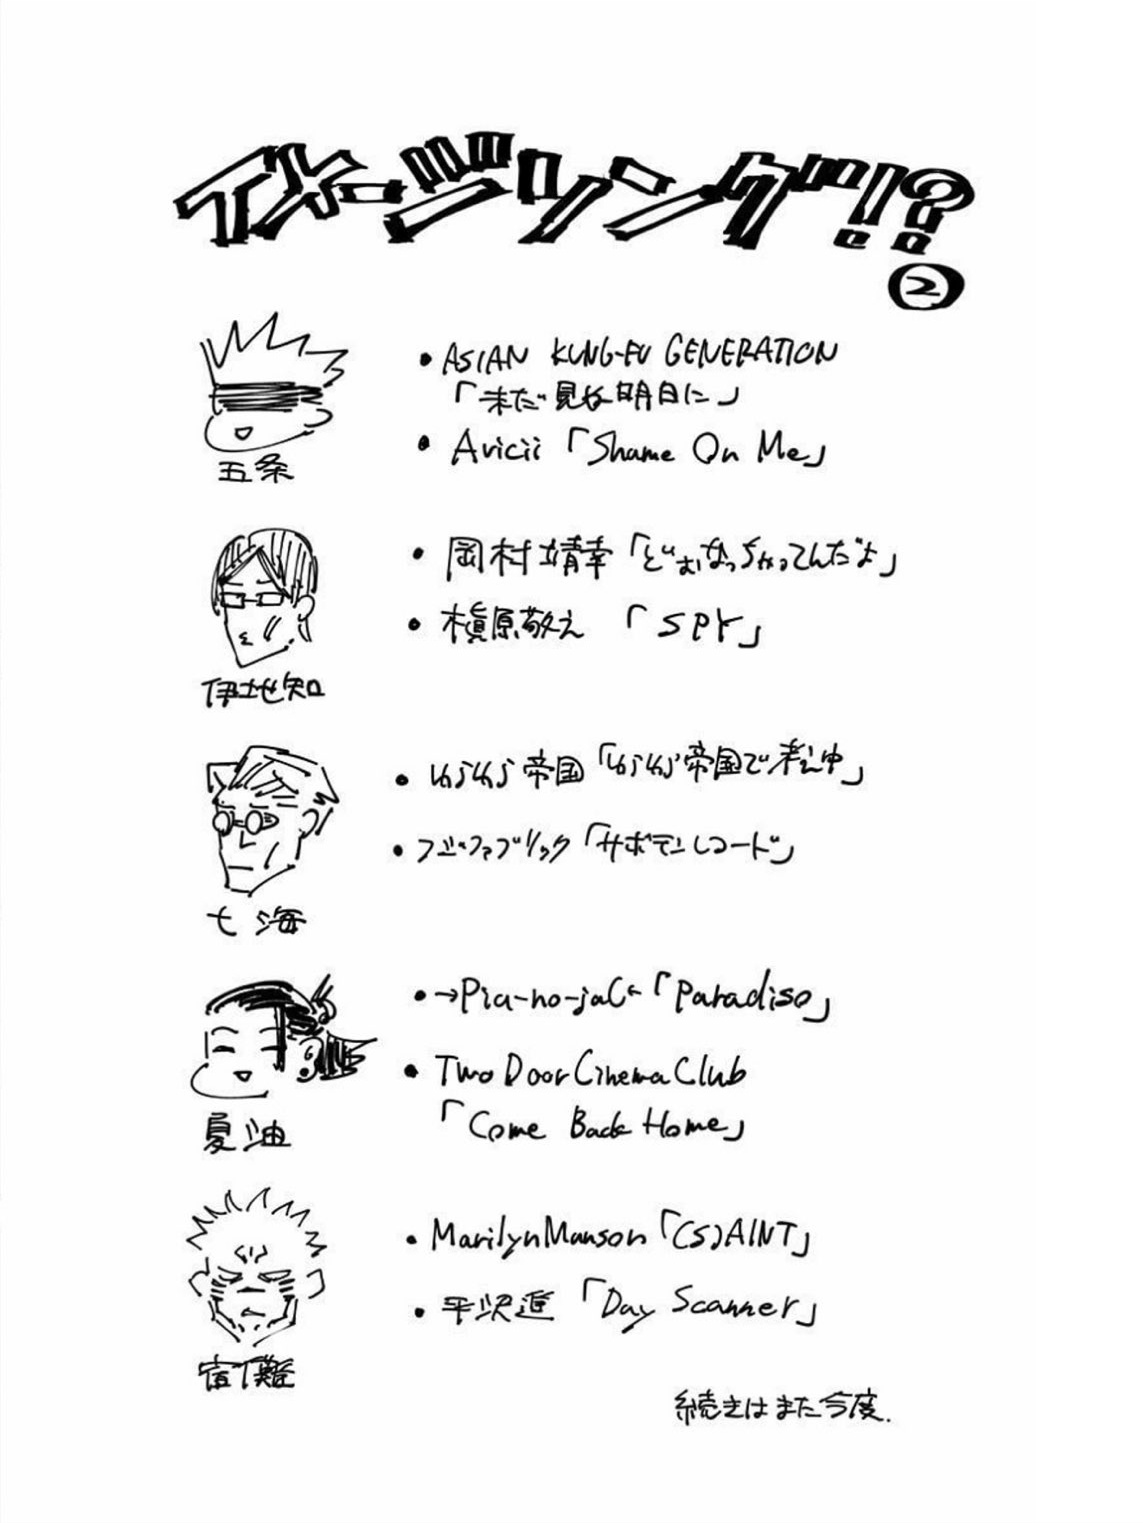 イメージソング!?
②
五条
・ASIAN KUNG-FU GENERATION
「未だ見ぬ明日に」
・Avicii「Shame On Me」
伊地知
・岡村靖幸「どぉなっちゃってんだよ」
・槇原敬之 「SPY」
七海
・ゆらゆら帝国「ゆらゆら帝国で考え中」
・フジファブリック「サボテンレコード」
夏油
・→Pia-no-jaC←「Paradiso」
・Two Door Cinema Club
「Come Back Home」
宿儺
・Marilyn Manson「(s)AINT」
・平沢進「Day Scanner」
続きはまた今度.